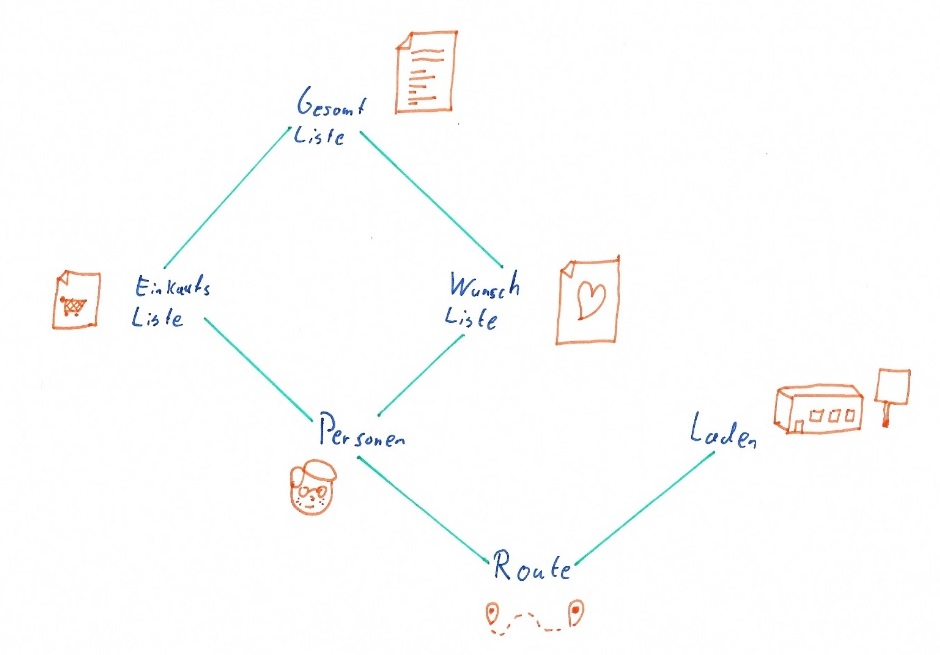 Gesamt
Liste
Einkaufs
Liste
Wunsch
Liste
Personen
Laden
Route